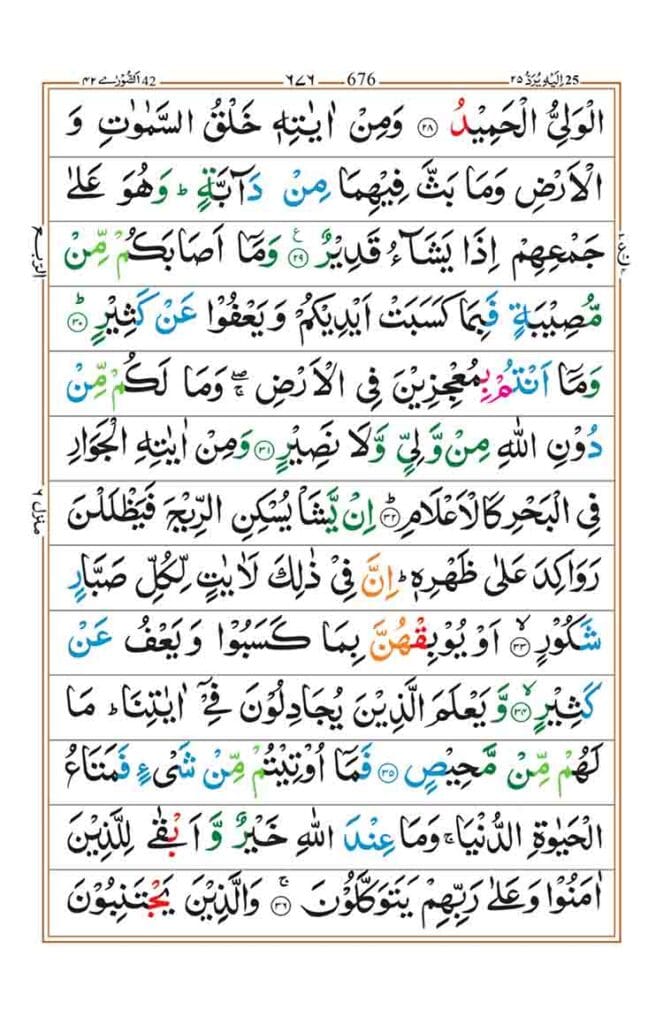 25 اِلَيْهِ يُرَدُّ ٢٥
676 ٦٧٦
42 اَلشُّوْرٰى ٤٢
الْوَلِيُّ الْحَمِيْدُ ﴿٢٨﴾ وَمِنْ اٰيٰتِهٖ خَلْقُ السَّمٰوٰتِ وَ
الْاَرْضِ وَمَا بَثَّ فِيْهِمَا مِنْ دَآبَّةٍ ؕ وَهُوَ عَلٰى
جَمْعِهِمْ اِذَا يَشَآءُ قَدِيْرٌ ﴿٢٩﴾ ع وَمَآ اَصَابَكُمْ مِّنْ
مُّصِيْبَةٍ فَبِمَا كَسَبَتْ اَيْدِيْكُمْ وَيَعْفُوْا عَنْ كَثِيْرٍ ؕ ﴿٣٠﴾
وَمَآ اَنْتُمْ بِمُعْجِزِيْنَ فِى الْاَرْضِ ۖۚ وَمَا لَكُمْ مِّنْ
دُوْنِ اللّٰهِ مِنْ وَّلِيٍّ وَّلَا نَصِيْرٍ ﴿٣١﴾ وَمِنْ اٰيٰتِهِ الْجَوَارِ
فِى الْبَحْرِ كَالْاَعْلَامِ ؕ ﴿٣٢﴾ اِنْ يَّشَاْ يُسْكِنِ الرِّيْحَ فَيَظْلَلْنَ
رَوَاكِدَ عَلٰى ظَهْرِهٖ ؕ اِنَّ فِيْ ذٰلِكَ لَاٰيٰتٍ لِّكُلِّ صَبَّارٍ
شَكُوْرٍ ۙ ﴿٣٣﴾ اَوْ يُوْبِقْهُنَّ بِمَا كَسَبُوْا وَيَعْفُ عَنْ
كَثِيْرٍ ۙ ﴿٣٤﴾ وَّ يَعْلَمَ الَّذِيْنَ يُجَادِلُوْنَ فِيْٓ اٰيٰتِنَا ؕ مَا
لَهُمْ مِّنْ مَّحِيْصٍ ﴿٣٥﴾ فَمَآ اُوْتِيْتُمْ مِّنْ شَيْءٍ فَمَتَاعُ
الْحَيٰوةِ الدُّنْيَا ۚ وَمَا عِنْدَ اللّٰهِ خَيْرٌ وَّ اَبْقٰى لِلَّذِيْنَ
اٰمَنُوْا وَعَلٰى رَبِّهِمْ يَتَوَكَّلُوْنَ ۚ ﴿٣٦﴾ وَالَّذِيْنَ يَجْتَنِبُوْنَ
الربع
منزل ٦